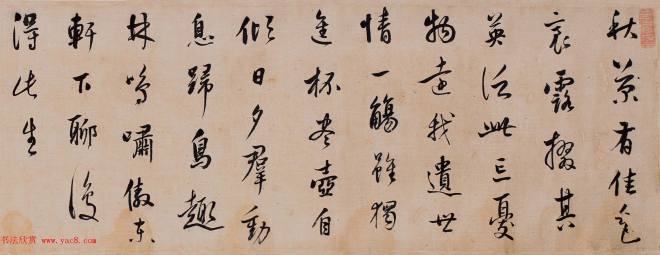 秋菊有佳色
裛露掇其
英泛此忘憂
物遠我遺世
情一觴雖獨
進杯盡壺自
傾日夕群動
息歸鳥趣
林鳴嘯傲東
軒下聊復
得此生
书法欣赏
www.yac8.com